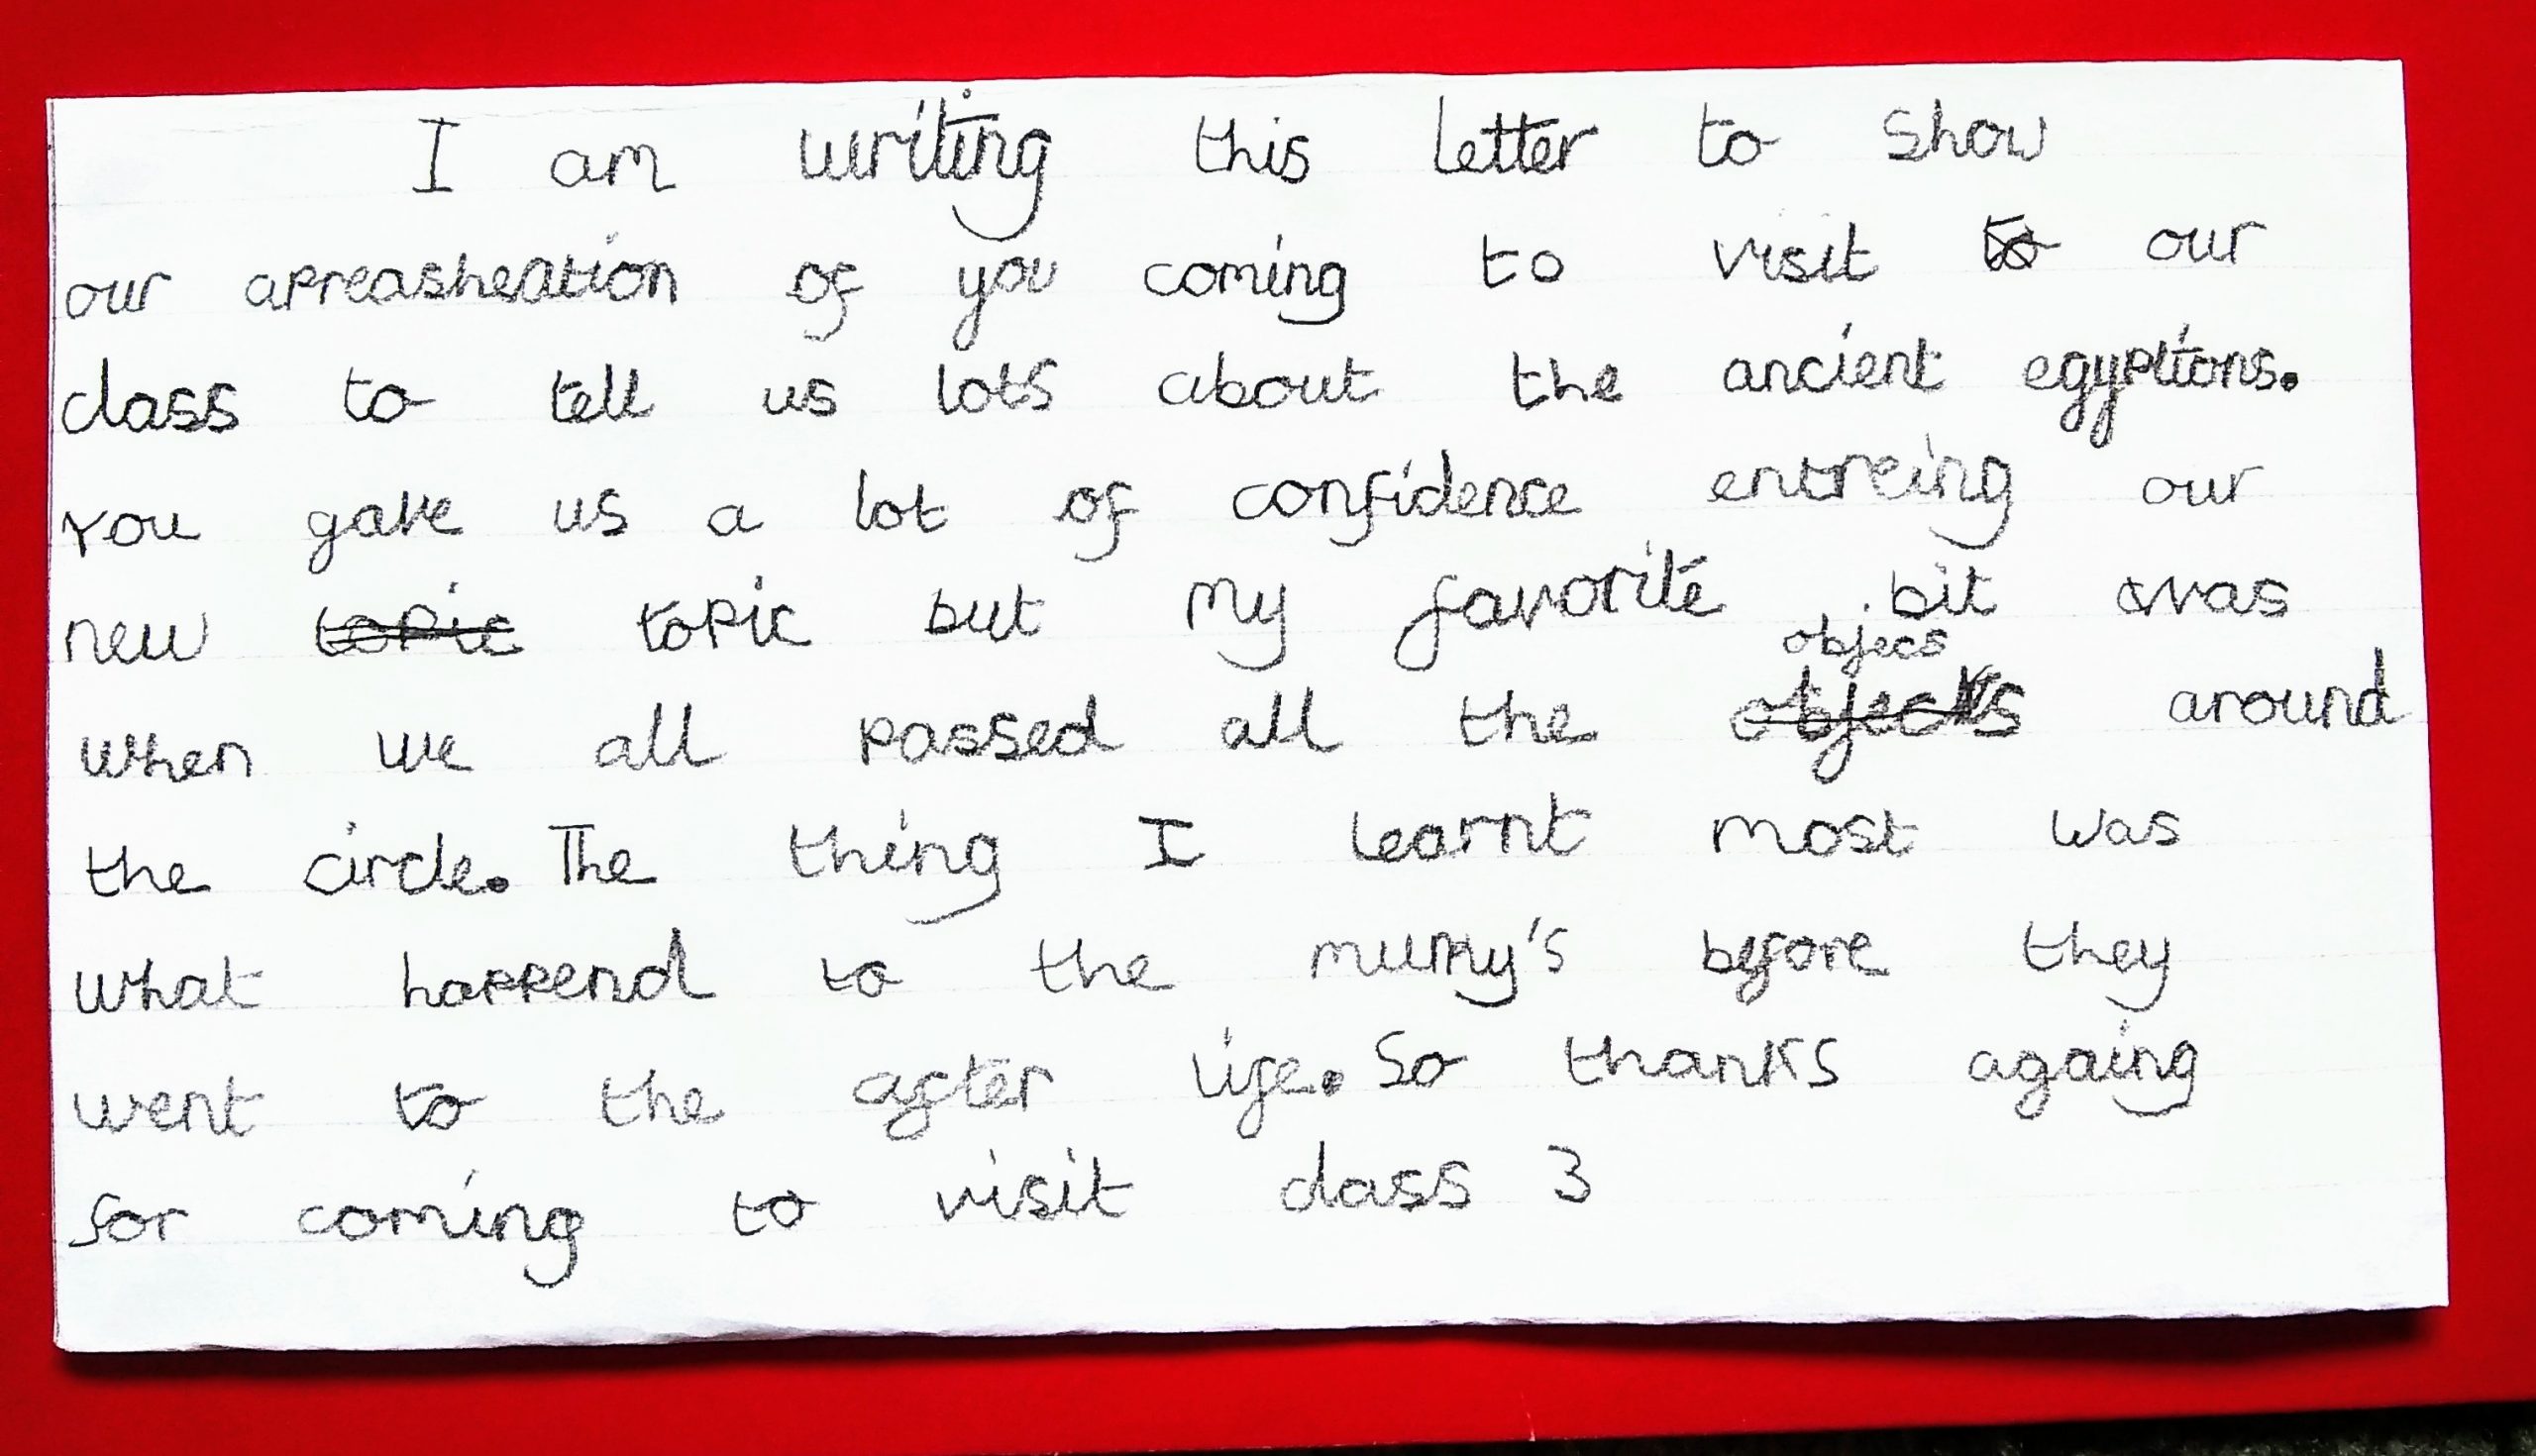 I am writing this letter to show
our apreasheation of you coming to visit to our
class to tell us lots about the ancient egyptions.
You gave us a lot of confidence entreing our
new topic topic but my favorite bit was
objecs
when we all passed all the objects around
the circle. The thing I learnt most was
what happend to the mumy's before they
went to the after life. So thanks againg
for coming to visit class 3